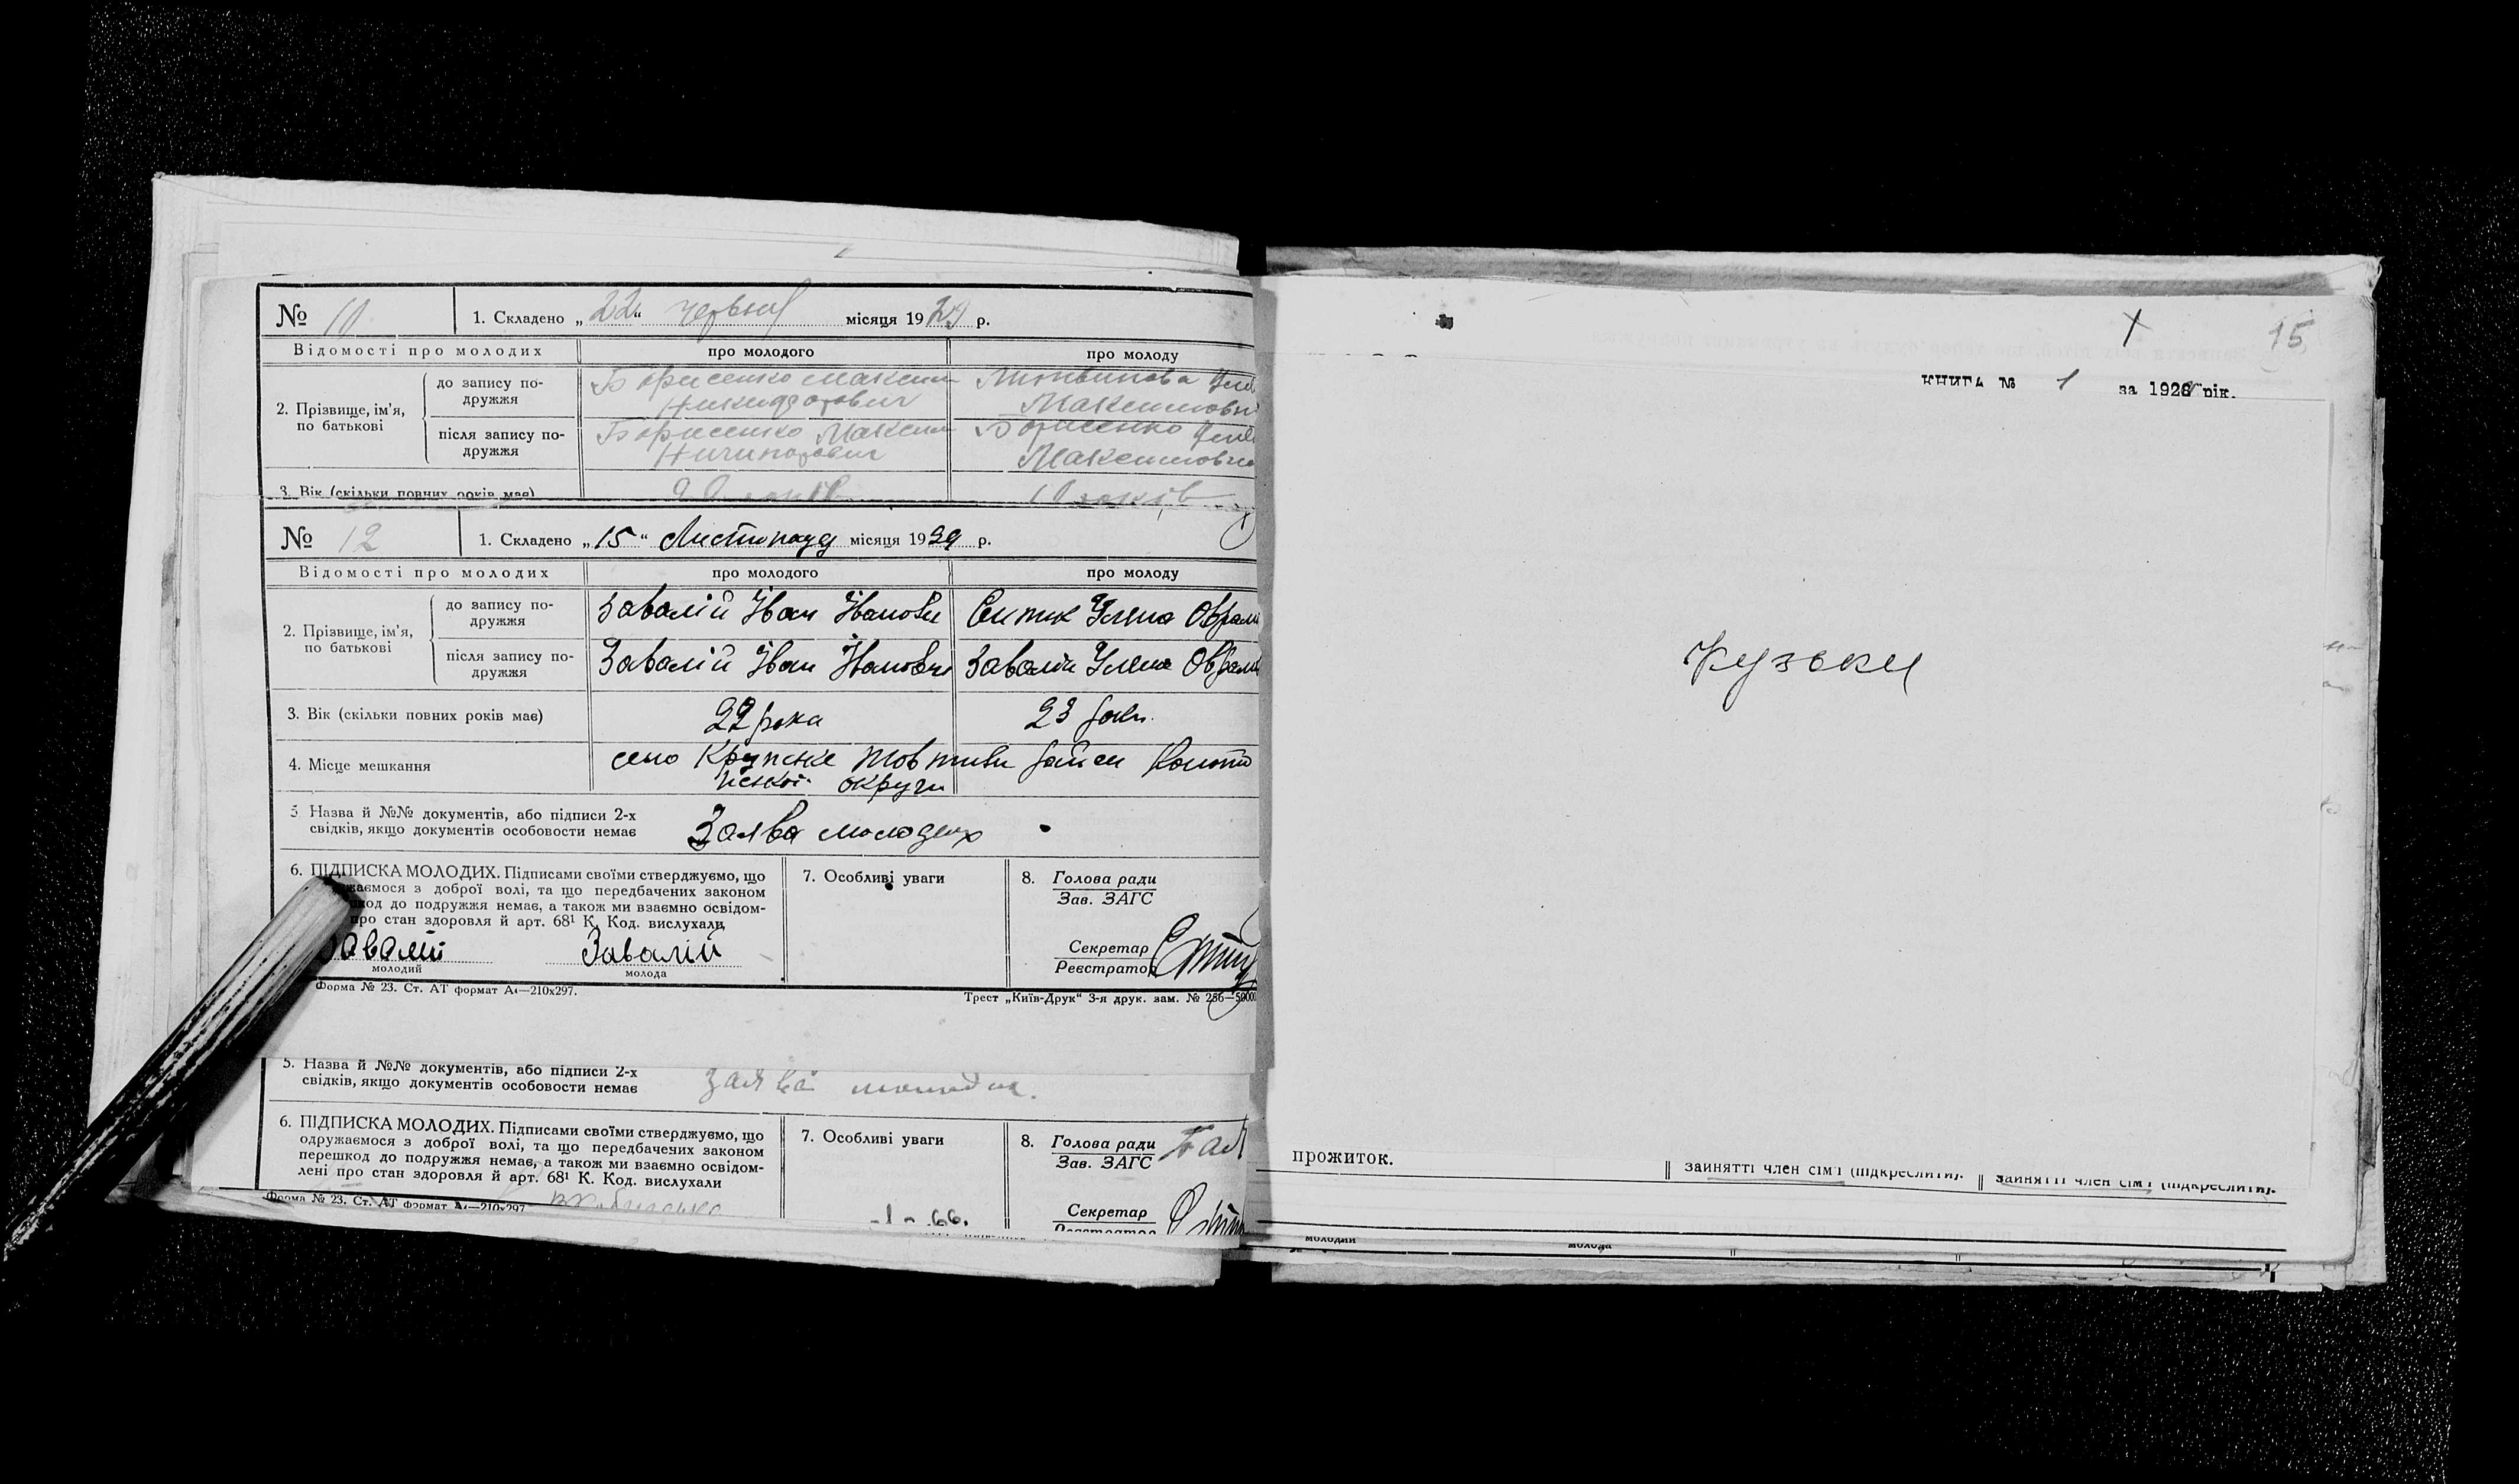 № 10 1. Складено „22“ червня місяця 1929 р.
Відомості про молодих про молодого про молоду
2. Прізвище, ім'я, по батькові
до запису подружжя Борисенко Максим Литвинова
Максимовн
після запису подружжя Борисенко Максим Борисенко
Ничипорович Максимовна
3. Вік (скільки повних років має) років
№ 12 1. Складено „15“ Листопада місяця 1929 р.
Відомості про молодих про молодого про молоду
2. Прізвище, ім'я, по батькові
до запису по-
дружжя
Завалій Іван Іванови Ситик Уляна Оврам
після запису по-
дружжя
Завалій Іван Іванович Завалій Уляна Оврам
3. Вік (скільки повних років має) 22 рока 23 роки
4. Місце мешкання село Крупське району Коното
пської округи
5 Назва й №№ документів, або підписи 2-х
свідків, якщо документів особовости немає Заява молодих
6. ПІДПИСКА МОЛОДИХ. Підписами своїми стверджуємо, що
жаємося з доброї волі, та що передбачених законом
код до подружжя немає, а також ми взаємно освідом-
про стан здоровля й арт. 68¹ К. Код. вислухали
Завалій Завалій
молодий молода
7. Особливі уваги
8. Голова ради
Зав. ЗАГС
Секретар
Реєстратор
Форма № 23. Ст. АТ формат А4—210х297. Трест „Київ-Друк“ 3-я друк. зам. № 256—50000
5. Назва й №№ документів, або підписи 2-х
свідків, якщо документів особовости немає заява молодих.
6. ПІДПИСКА МОЛОДИХ. Підписами своїми стверджуємо, що
одружаємося з доброї волі, та що передбачених законом
перешкод до подружжя немає, а також ми взаємно освідом-
лені про стан здоровля й арт. 68¹ К. Код. вислухали
7. Особливі уваги
8. Голова ради
Зав. ЗАГС
Секретар
Форма № 23. Ст. АТ формат А4—210х297
15
КНИГА № 1 за 1928 рік.
Кузьки
прожиток. зайнятті член сім'ї (підкреслити). зайнятті член сім'ї (підкреслити).
молодий молода